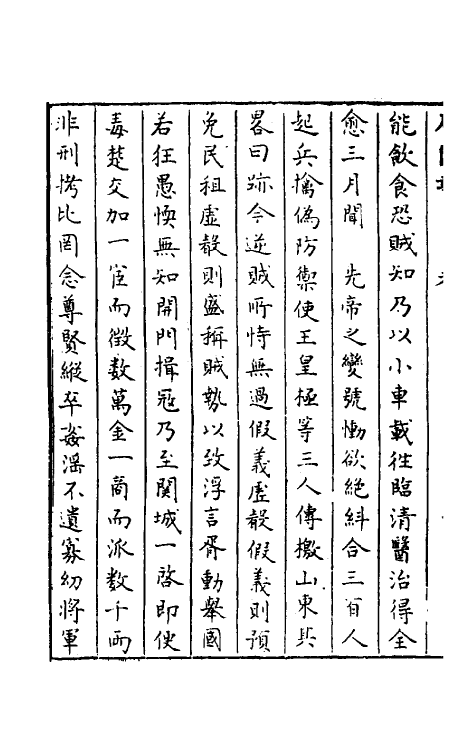 能飲食恐賊知乃以小車載徃臨清醫治得全
愈三月聞　先帝之變號慟欲絕糾合三百人
起兵擒偽防禦使王皇極等三人傳檄山東其
畧曰跡今逆賊所恃無過假義虛聲假義則預
免民租虛聲則盛稱賊勢以致浮言胥動舉國
若狂愚懦無知開門揖冦乃至關城一啓即使
毒楚交加一宦而徵數萬金一商而派數千兩
非刑拷比罔念尊賢縱卒姦淫不遺寡幼將軍